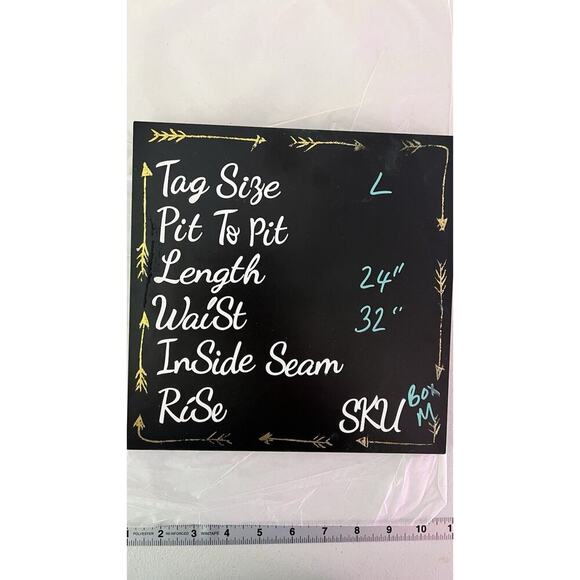 Tag Size L
Pit To Pit
Length 24"
Waist 32"
Inside Seam
Rise SKU Box M
1 POLYESTER 2 REINFORCED 3 WRETAPE 4 5 6 7 8 9 10 1